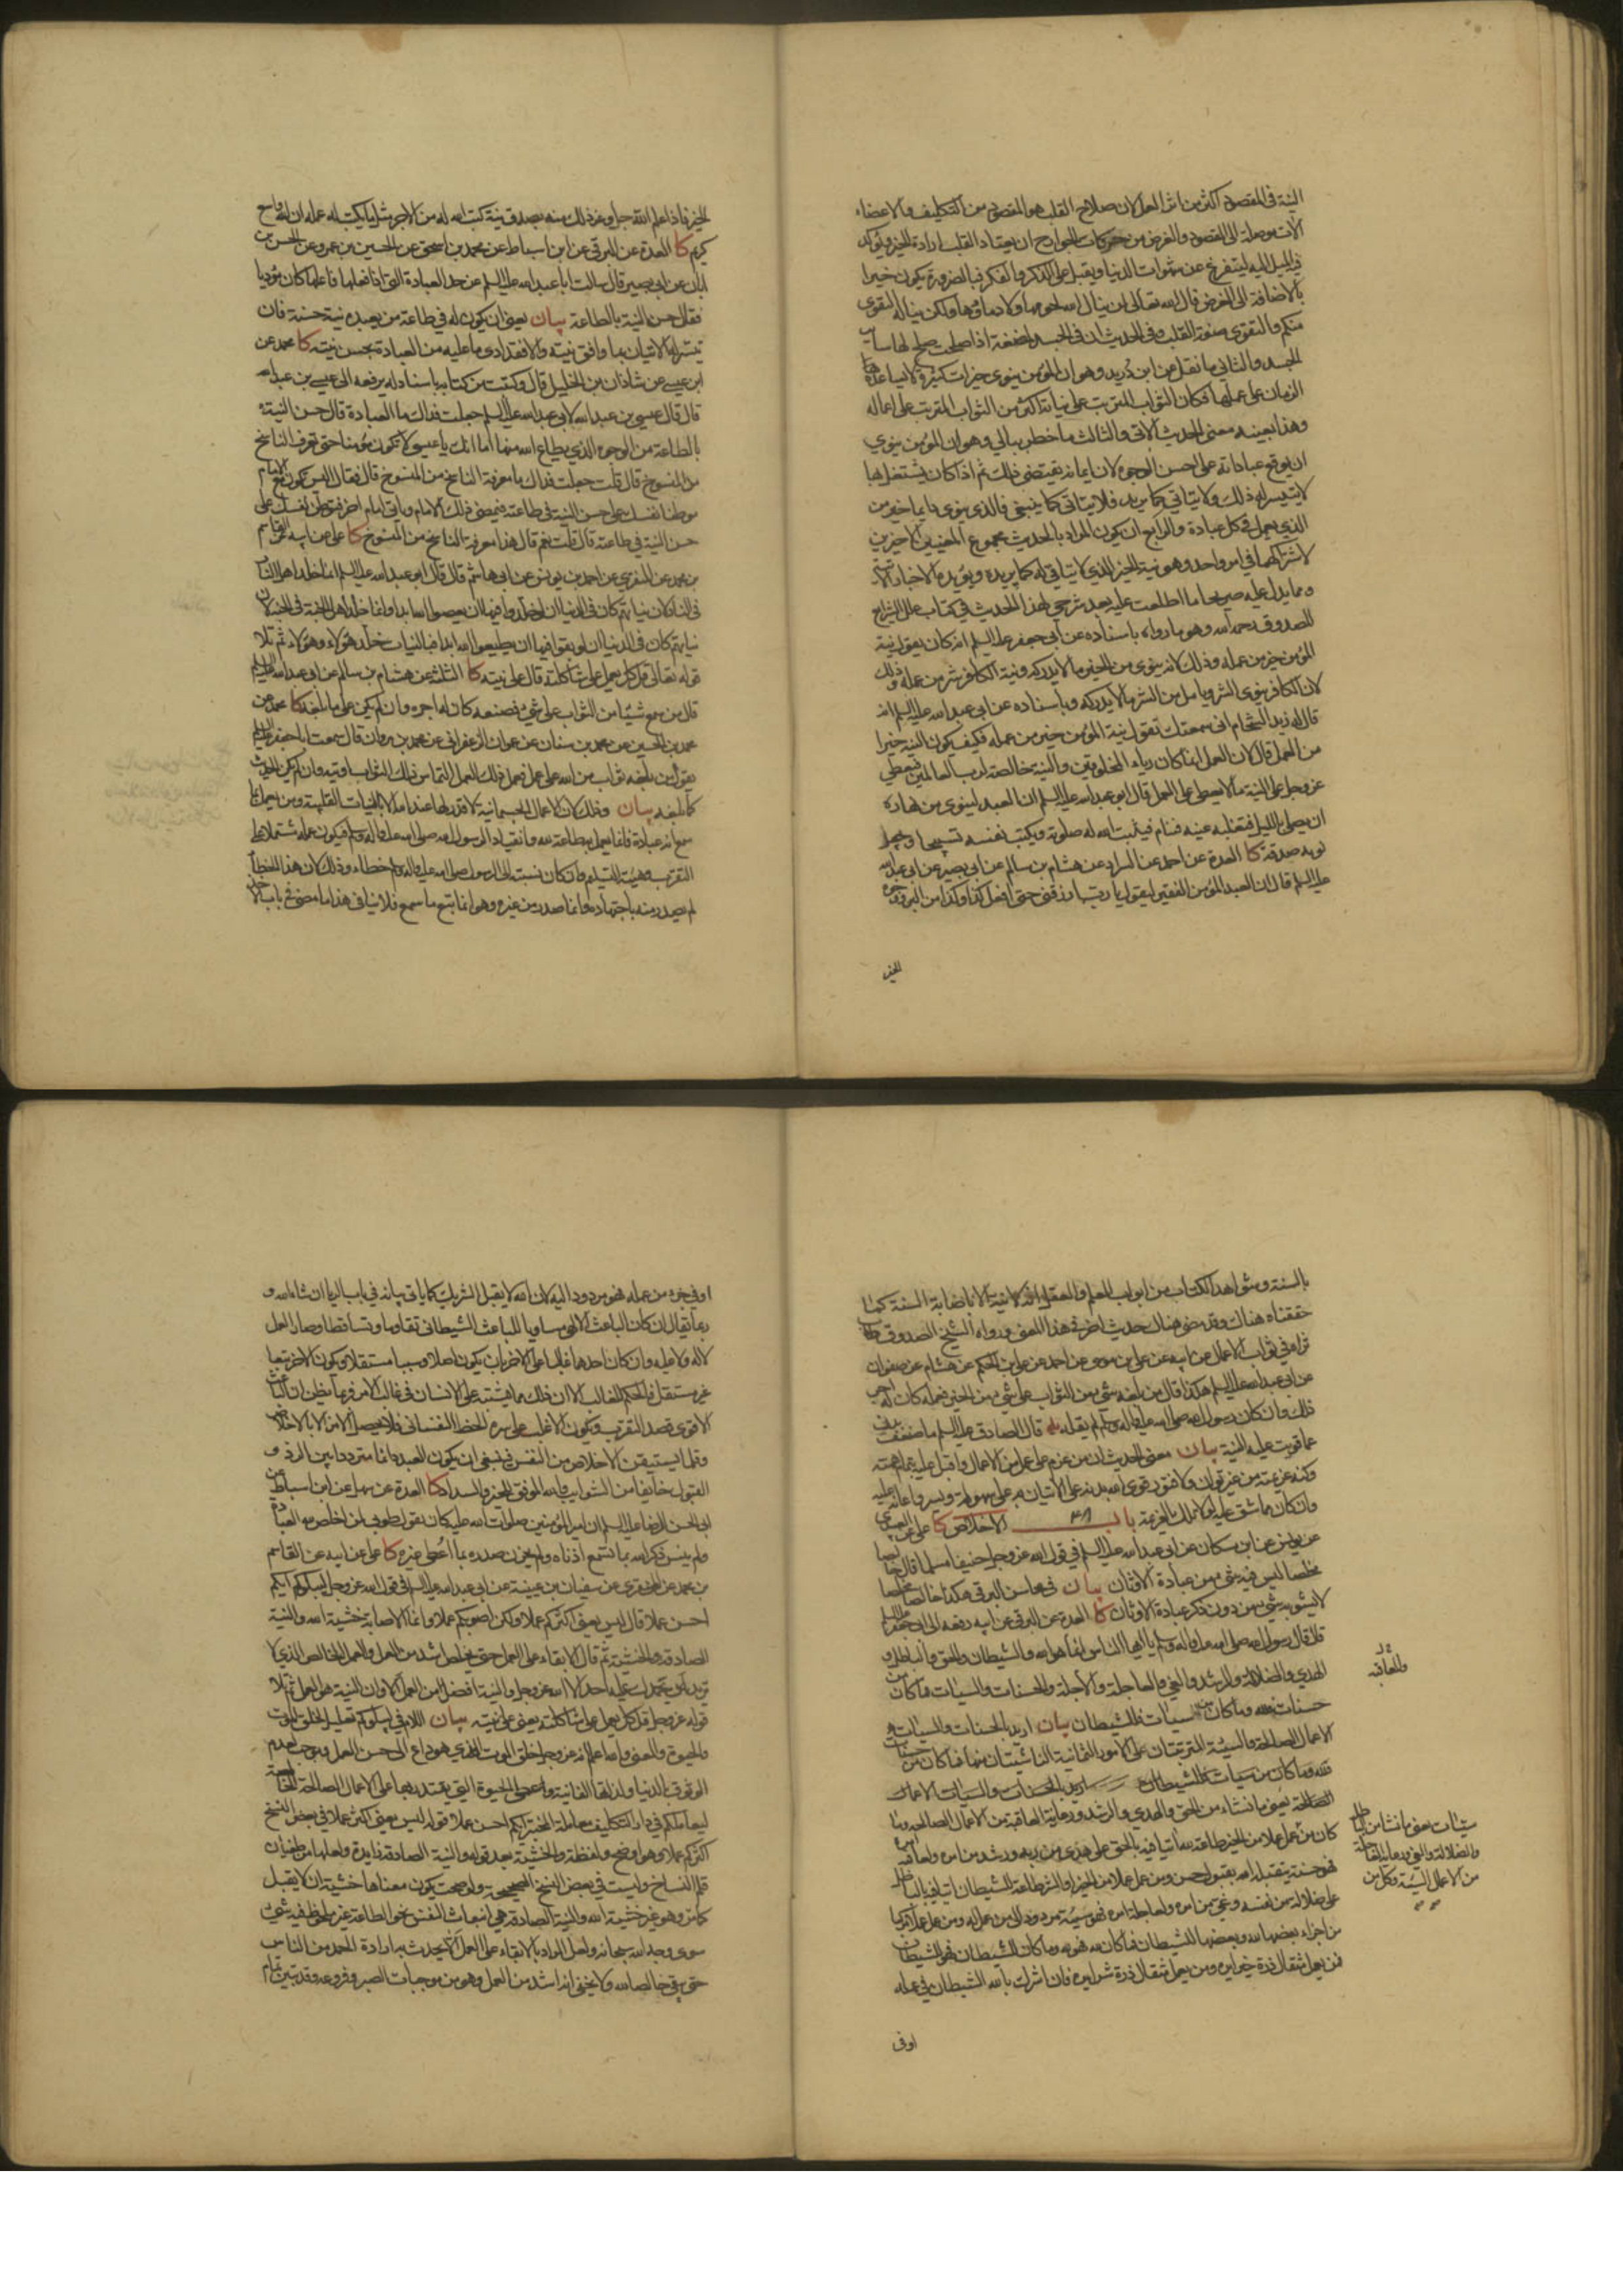 النية في المقصود اكثر من اثر العمل لان صلاح القلب هو المقصود من التكليف والاعضاء
آلات موصلة الى المقصود والغرض من حركات الجوارح ان يعتاد القلب ارادة الخير ويؤكد
فيه الميل اليه ليتفرغ عن شهوات الدنيا ويقبل على الذكر والفكر فبالضرورة يكون خيرا
بالاضافة الى الغرض قال الله تعالى لن ينال الله لحومها ولا دماؤها ولكن يناله التقوى
منكم والتقوى صفة القلب وفي الحديث ان في الجسد لمضغة اذا صلحت صلح لها ساير
الجسد والثاني ما نقل عن ابن دريد وهو ان المؤمن ينوي خيرات كثيرة لا يساعده
الزمان على عملها فكان الثواب المترتب على نياته اكثر من الثواب المترتب على اعماله
وهذا بعينه معنى الحديث الآتي والثالث ما خطر ببالي وهو ان المؤمن ينوي
ان يوقع عباداته على احسن الوجوه لان ايمانه يقتضي ذلك ثم اذا كان يشتغل بها
لا يتيسر له ذلك ولا يتأتى كما يريد فلا ياتي كما ينبغي فالذي ينوي دايما خير من
الذي يعمل في كل عبادة والرابع ان يكون المراد بالحديث مجموع المعنيين الاخيرين
لاشتراكهما في امر واحد وهو نية الخير الذي لا يتأتى له كما يريده ويؤيده الاخبار الآتية
ومما يدل عليه صريحا ما اطلعت عليه بعد شرحي لهذا الحديث في كتاب علل الشرايع
للصدوق رحمه الله وهو ما رواه باسناده عن ابي جعفر عليه السلم انه كان يقول نية
المؤمن خير من عمله وذلك لانه ينوي من الخير ما لا يدركه ونية الكافر شر من عمله وذلك
لان الكافر ينوي الشر ويامل من الشر ما لا يدركه وباسناده عن ابي عبد الله عليه السلم انه
قال له زيد الشحام اني سمعتك تقول نية المؤمن خير من عمله فكيف يكون النية خيرا
من العمل قال لان العمل انما كان رياء المخلوقين والنية خالصة لرب العالمين فيعطي
عز وجل على النية ما لا يعطي على العمل قال ابو عبد الله عليه السلم ان العبد لينوي من نهاره
ان يصلي بالليل فتغلبه عينه فينام فيثبت الله له صلوته ويكتب نفسه تسبيحا ويجعل
نومه صدقة كا العدة عن احمد عن السراد عن هشام بن سالم عن ابي بصير عن ابي عبد الله
عليه السلم قال ان العبد المؤمن الفقير ليقول يا رب ارزقني حتى افعل كذا وكذا من البر ووجوه
الخير
الخير فاذا علم الله جل وعز ذلك منه بصدق نية كتب الله له من الاجر مثل ما يكتب له لو عمله ان الله واسع
كريم كا العدة عن البرقي عن ابن اسباط عن محمد بن اسحق عن الحسين بن عمرو عن الحسن بن
ابان عن ابي بصير قال سالت ابا عبد الله عليه السلم عن حد العبادة التي اذا فعلها فاعلها كان مؤديا
فقال حسن النية بالطاعة بيان يعني ان يكون له في طاعة من يعبده نية حسنة فان
تيسر له الاتيان بما وافق نيته والا فقد ادى ما عليه من العبادة بحسن نيته كا محمد عن
ابن عيسى عن شاذان بن الخليل قال وكتبت من كتابه باسناد له يرفعه الى عيسى بن عبد الله
قال قال عيسى بن عبد الله لابي عبد الله عليه السلم جعلت فداك ما العبادة قال حسن النية
بالطاعة من الوجوه الذي يطاع الله منها اما انك يا عيسى لا تكون مؤمنا حتى تعرف الناسخ
من المنسوخ قال قلت جعلت فداك ما معرفة الناسخ من المنسوخ قال فقال اليس تكون مع الامام
موطنا نفسك على حسن النية في طاعته فيمضي ذلك الامام وياتي امام اخر فتوطن نفسك على
حسن النية في طاعته قال قلت نعم قال هذا معرفة الناسخ من المنسوخ كا علي عن ابيه عن القاسم
بن محمد عن المنقري عن احمد بن يونس عن ابي هاشم قال قال ابو عبد الله عليه السلم انما خلد اهل النار
في النار لان نياتهم كان في الدنيا ان لو خلدوا فيها ان يعصوا الله ابدا وانما خلد اهل الجنة في الجنة لان
نياتهم كان في الدنيا ان لو بقوا فيها ان يطيعوا الله ابدا فبالنيات خلد هؤلاء وهؤلاء ثم تلا
قوله تعالى قل كل يعمل على شاكلته قال على نيته كا الثلثة عن هشام بن سالم عن ابي عبد الله عليه السلم
قال من سمع شيئا من الثواب على شيء فصنعه كان له اجره وان لم يكن على ما بلغه كا محمد عن
محمد بن الحسين عن محمد بن سنان عن عمران الزعفراني عن محمد بن مروان قال سمعت ابا جعفر عليه السلم
يقول من بلغه ثواب من الله على عمل فعمل ذلك العمل التماس ذلك الثواب اوتيه وان لم يكن الحديث
كما بلغه بيان وذلك لان الاعمال الجسمانية لا قدر لها عند الله الا بالنيات القلبية ومن يعمل بما
سمع انه عبادة فانما يعمل به طاعة لله وانقيادا لرسول الله صلى الله عليه واله وسلم فيكون عمله مشتملا على
التقرب وهيئة التسليم وان كان نسبته الى الرسول صلى الله عليه واله وسلم خطاء وذلك لان هذا الخطأ
لم يصدر منه باجتهاده وانما صدر من غيره وهو انما اتبع ما سمع فلا ينافي هذا ما مضى في باب الاخذ
بالسنة وشواهد الكتاب من ابواب العلم والعقل انه لا نية الا باصابة السنة كما
حققناه هناك وقد مضى هناك حديث اخر في هذا المعنى ورواه الشيخ الصدوق طاب
ثراه في ثواب الاعمال عن ابيه عن علي بن موسى عن احمد عن علي بن الحكم عن هشام عن صفوان
عن ابي عبد الله عليه السلم هكذا قال من بلغه شيء من الثواب على شيء من الخير فعمله كان له اجر
ذلك وان كان رسول الله صلى الله عليه واله وسلم لم يقله يه قال الصادق عليه السلم ما ضعف بدن
عما قويت عليه النية بيان معنى الحديث ان من عزم على عمل من الاعمال واقبل عليه بتمام همته
وكنه عزيمته من غير توان ولا فتور قوى الله بدنه على الاتيان به على سهولة ويسر واعانه عليه
وان كان مما شق عليه لولا تلك العزيمة باب ٣٨ الاخلاص كا علي عن العبيدي
عن يونس عن ابن مسكان عن ابي عبد الله عليه السلم في قول الله عز وجل حنيفا مسلما قال خالصا
مخلصا ليس فيه شيء من عبادة الاوثان بيان في محاسن البرقي هكذا خالصا مخلصا
لا يشوبه شيء من دون ذكر عبادة الاوثان كا العدة عن البرقي عن ابيه رفعه الى ابي جعفر عليه السلم
قال قال رسول الله صلى الله عليه واله وسلم يا ايها الناس انما هو الله والشيطان والحق والباطل و
الهدى والضلالة والرشد والغي والعاجلة والآجلة والحسنات والسيئات فما كان من
والعاقبة
حسنات فلله وما كان من سيئات فللشيطان بيان اريد بالحسنات والسيئات
الاعمال الصالحة والسيئة المترتبتان على الامور الثمانية الناشيتان منها فما كان من حسنات
فلله وما كان من سيئات فللشيطان اريد بالحسنات والسيئات الاعمال
الصالحة يعني ما نشاء من الحق والهدى والرشد ورعاية العاقبة من الاعمال الصالحة وما
سيئات يعني ما نشاء من الباطل
والضلالة والغي ورعاية العاجلة
من الاعمال السيئة وكل من
كان من عمل عملا من الخير طاعة لله اتيا فيه بالحق على هدى من ربه ورشد من امره ولعاقبة امره
فهو حسنة يتقبله الله بقبول حسن ومن عمل عملا من الخير او الشر طاعة للشيطان اتيا فيه بالباطل
على ضلالة من نفسه وغي من امره ولعاجلة امره فهو سيئة مردود الى من عمل له ومن عمل عملا مركبا
من اجزاء بعضها لله وبعضها للشيطان فما كان لله فهو لله وما كان للشيطان فهو للشيطان
فمن يعمل مثقال ذرة خيرا يره ومن يعمل مثقال ذرة شرا يره فان اشرك بالله الشيطان في عمله
اوفى
او في جزء من عمله فهو مردود اليه لان الله لا يقبل الشريك كما ياتي بيانه في باب الريا ان شاء الله و
ربما يقال ان كان الباعث الالهي مساويا للباعث الشيطاني تقاوما وتساقطا وصار العمل
لا له ولا عليه وان كان احدهما غالبا على الاخر بان يكون اصلا وسببا مستقلا ويكون الاخر تبعا
غير مستقل فالحكم للغالب الا ان ذلك مما يشتبه على الانسان في غالب الامر فربما يظن ان الباعث
الاقوى قصد التقرب ويكون الاغلب على سره الحظ النفساني فلا يحصل الامن الا بالاخلاص
وقلما يستيقن الاخلاص من النفس فينبغي ان يكون العبد دائما مترددا بين الرد و
القبول خايفا من الشوايب والله الموفق للخير والسداد كا العدة عن سهل عن ابن اسباط عن
ابي الحسن الرضا عليه السلم ان امير المؤمنين صلوات الله عليه كان يقول طوبى لمن اخلص لله العبادة
ولم ينس ذكر الله بما تسمع اذناه ولم يحزن صدره بما اعطي غيره كا علي عن ابيه عن القاسم
بن محمد عن المنقري عن سفيان بن عيينة عن ابي عبد الله عليه السلم في قول الله عز وجل ليبلوكم ايكم
احسن عملا قال ليس يعني اكثركم عملا ولكن اصوبكم عملا وانما الاصابة خشية الله والنية
الصادقة والخشية ثم قال الابقاء على العمل حتى يخلص اشد من العمل والعمل الخالص الذي لا
تريد ان يحمدك عليه احد الا الله عز وجل والنية افضل من العمل الا وان النية هو العمل ثم تلا
قوله عز وجل قل كل يعمل على شاكلته يعني على نيته بيان اللام في ليبلوكم تعليل لخلق الموت
والحيوة والمعنى والله اعلم انه عز وجل خلق الموت الذي هو داع الى حسن العمل وموجب لعدم
الوثوق بالدنيا ولذاتها الفانية واعطى الحيوة التي يقتدر بها على الاعمال الصالحة الخالصة
ليعاملكم في دار التكليف معاملة المختبر ايكم احسن عملا قوله ليس يعني اكثر عملا في بعض النسخ
اكثركم عملا وهو اوضح ولفظة والخشية بعد قوله والنية الصادقة زايدة ولعلها من طغيان
قلم النساخ وليست في بعض النسخ الصحيحة ولو صحت يكون معناها خشية ان لا يقبل
كما مر وهو غير خشية الله والنية الصادقة هي انبعاث النفس نحو الطاعة غير ملحوظ فيه شيء
سوى وجه الله سبحانه ولعل المراد بالابقاء على العمل الا يحدث به ارادة الحمد من الناس
حتى يبقى خالصا لله ولا يخفى انه اشد من العمل وهو من موجبات الصبر وفروعه وقد تبين تمام